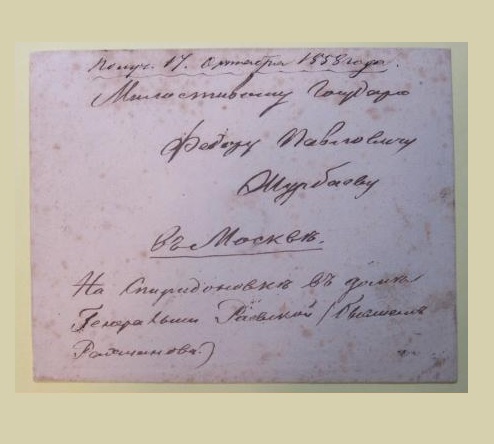 Получ. 17. октября 1858 года.
Милостивому Государю
Федору Павловичу
въ Москвѣ.
На Спиридоновкѣ въ домѣ
Генеральши Раевской (бывшемъ